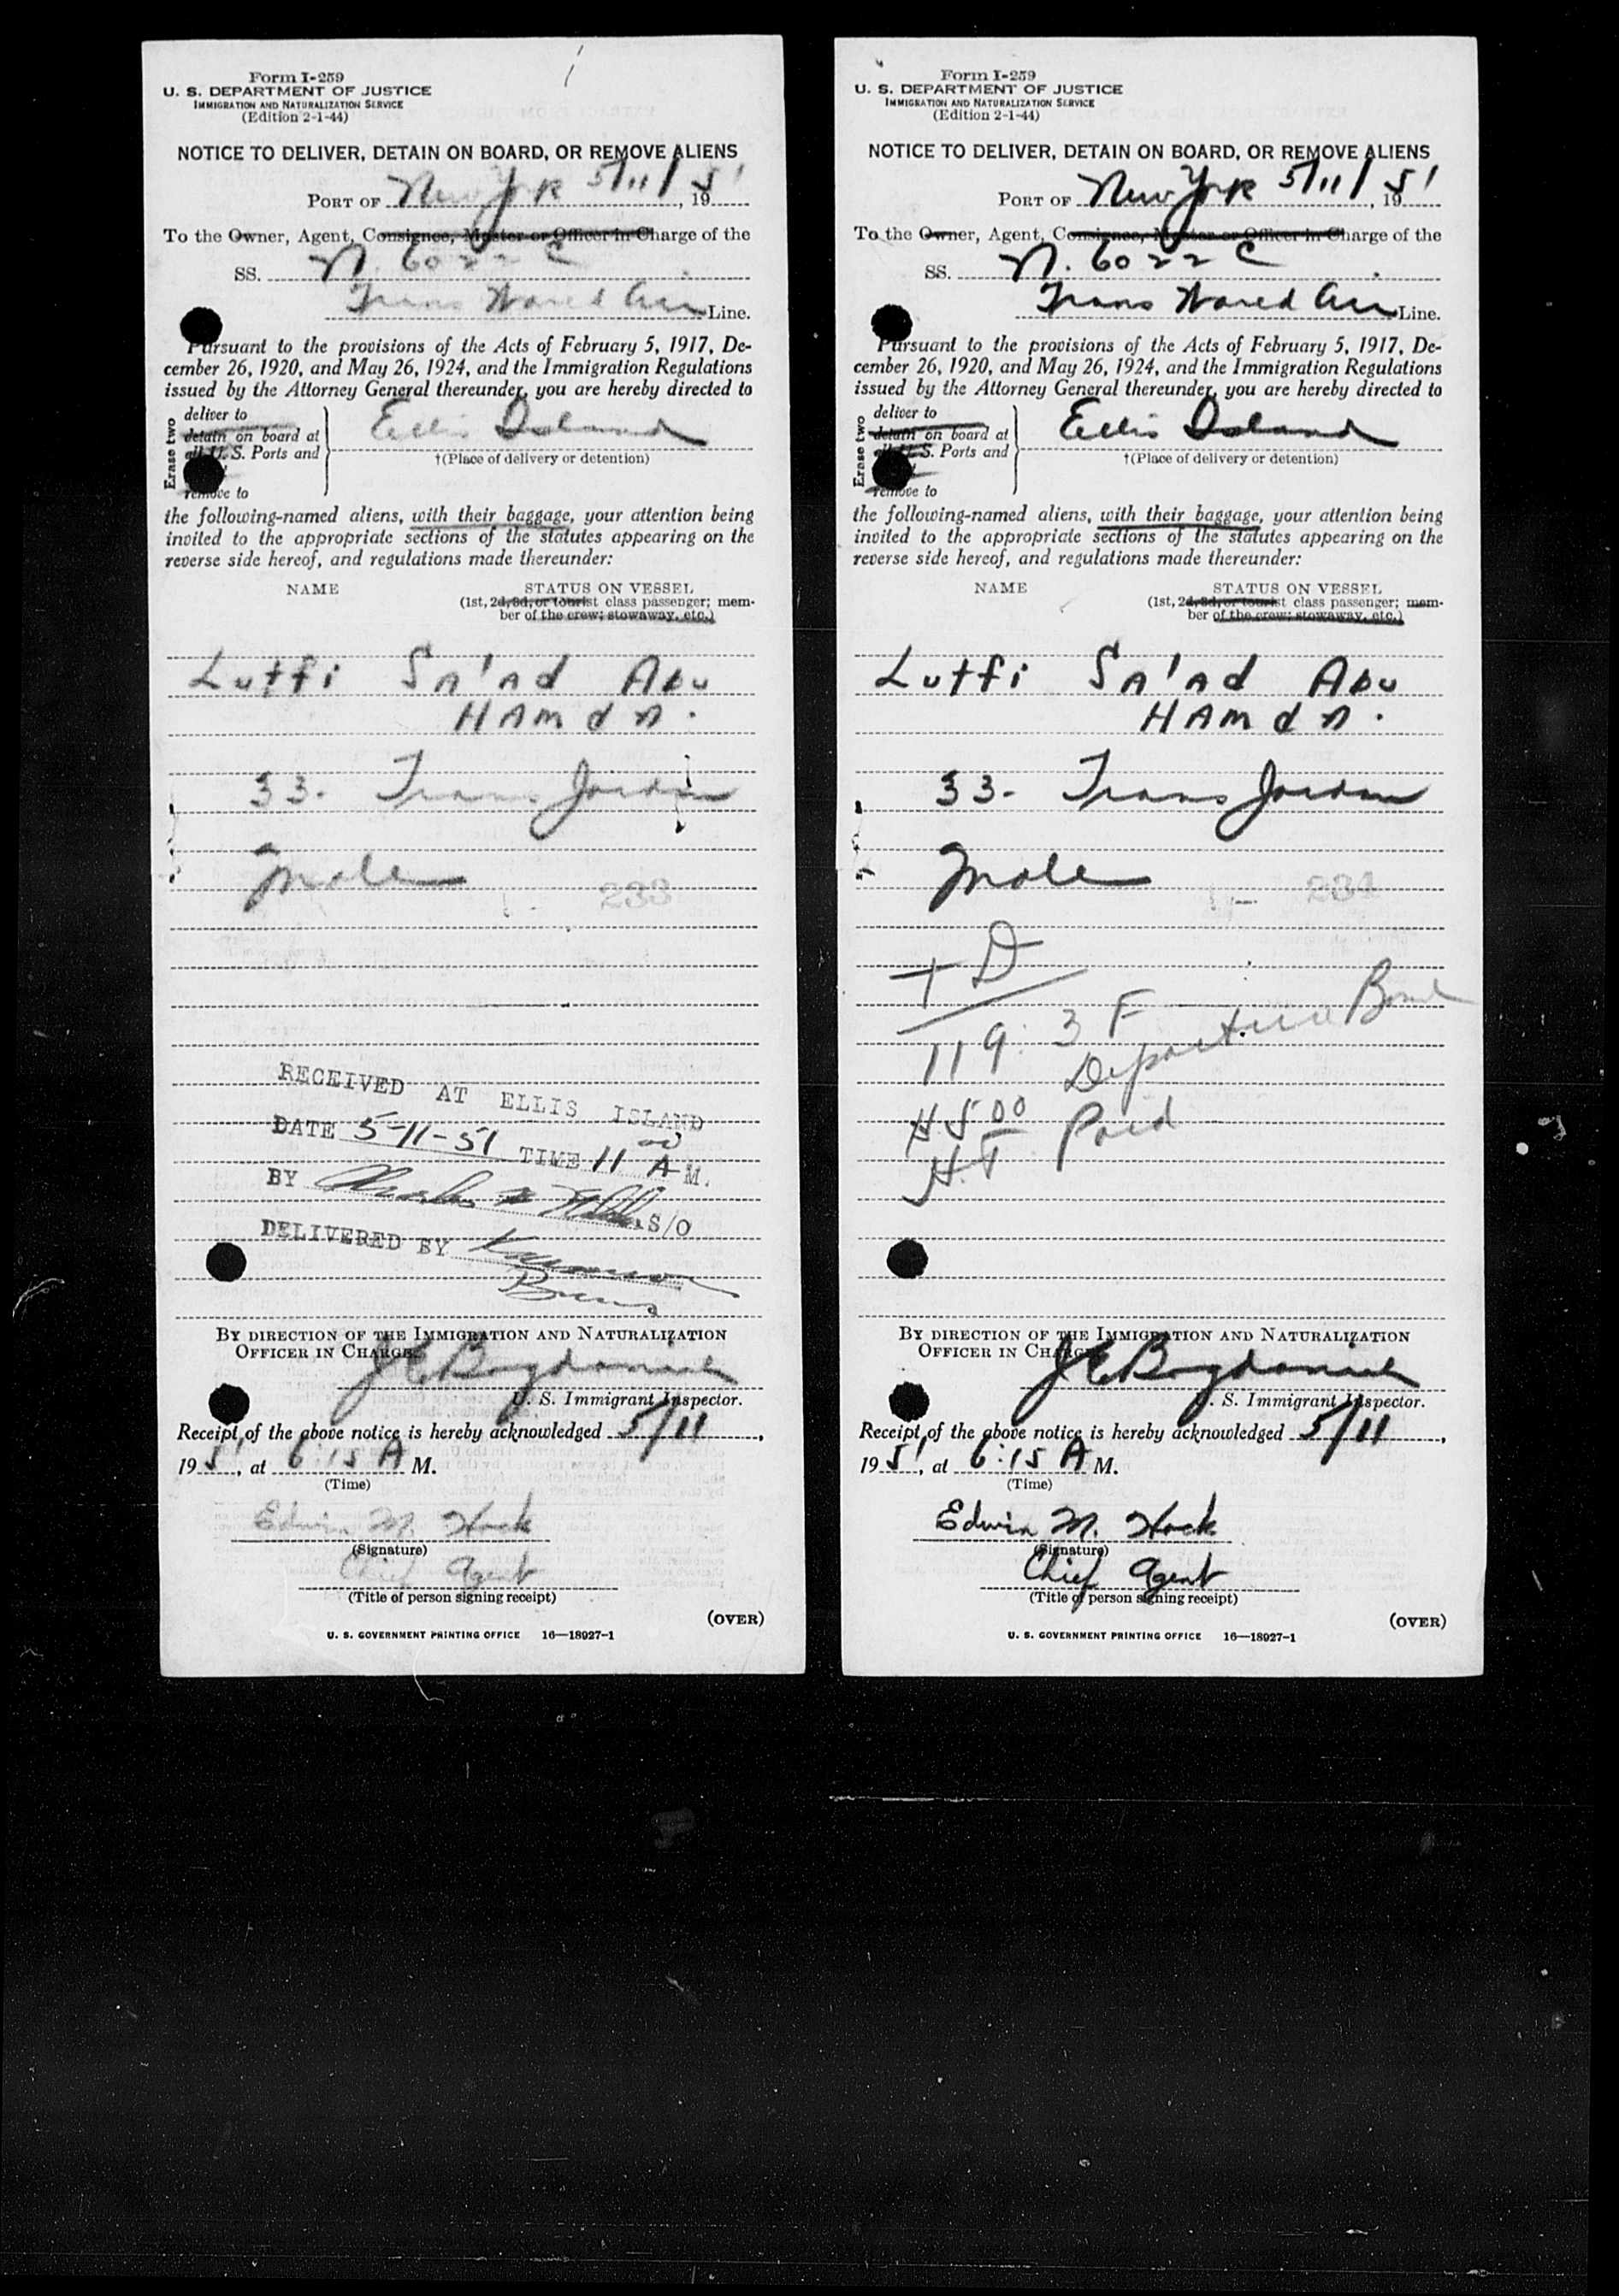 Form I-259
U. S. DEPARTMENT OF JUSTICE
IMMIGRATION AND NATURALIZATION SERVICE
(Edition 2-1-44)
NOTICE TO DELIVER, DETAIN ON BOARD, OR REMOVE ALIENS
PORT OF New York 5/11/51, 19
To the Owner, Agent, Consignee, Master or Officer in Charge of the
SS. N. 6022 C
Trans World Air Line.
Pursuant to the provisions of the Acts of February 5, 1917, De-
cember 26, 1920, and May 26, 1924, and the Immigration Regulations
issued by the Attorney General thereunder, you are hereby directed to
Erase two
deliver to
detain on board at
all U. S. Ports and
remove to
Ellis Island
†(Place of delivery or detention)
the following-named aliens, with their baggage, your attention being
invited to the appropriate sections of the statutes appearing on the
reverse side hereof, and regulations made thereunder:
NAME STATUS ON VESSEL
(1st, 2d, 3d, or tourist class passenger; mem-
ber of the crew; stowaway, etc.)
Lutfi SA'Ad Abu
HAmdA.
33- Trans Jordan
Male
233
RECEIVED AT ELLIS ISLAND
DATE 5-11-51 TIME 11 00 A M.
BY S/O
DELIVERED BY
BY DIRECTION OF THE IMMIGRATION AND NATURALIZATION
OFFICER IN CHARGE
U. S. Immigrant Inspector.
Receipt of the above notice is hereby acknowledged 5/11,
1951, at 6:15 A M.
(Time)
Edwin M. Hock
(Signature)
Chief Agent
(Title of person signing receipt)
(OVER)
U. S. GOVERNMENT PRINTING OFFICE 16—18927-1
Form I-259
U. S. DEPARTMENT OF JUSTICE
IMMIGRATION AND NATURALIZATION SERVICE
(Edition 2-1-44)
NOTICE TO DELIVER, DETAIN ON BOARD, OR REMOVE ALIENS
PORT OF New York 5/11/51, 19
To the Owner, Agent, Consignee, Master or Officer in Charge of the
SS. N. 6022 C
Trans World Air Line.
Pursuant to the provisions of the Acts of February 5, 1917, De-
cember 26, 1920, and May 26, 1924, and the Immigration Regulations
issued by the Attorney General thereunder, you are hereby directed to
Erase two
deliver to
detain on board at
all U. S. Ports and
remove to
Ellis Island
†(Place of delivery or detention)
the following-named aliens, with their baggage, your attention being
invited to the appropriate sections of the statutes appearing on the
reverse side hereof, and regulations made thereunder:
NAME STATUS ON VESSEL
(1st, 2d, 3d, or tourist class passenger; mem-
ber of the crew; stowaway, etc.)
Lutfi SA'Ad Abu
HAmdA.
33- Trans Jordan
Male
234
+ D
119. 3 F
Departure Bond
$500 Paid
H.T
BY DIRECTION OF THE IMMIGRATION AND NATURALIZATION
OFFICER IN CHARGE
U. S. Immigrant Inspector.
Receipt of the above notice is hereby acknowledged 5/11,
1951, at 6:15 A M.
(Time)
Edwin M. Hock
(Signature)
Chief Agent
(Title of person signing receipt)
(OVER)
U. S. GOVERNMENT PRINTING OFFICE 16—18927-1